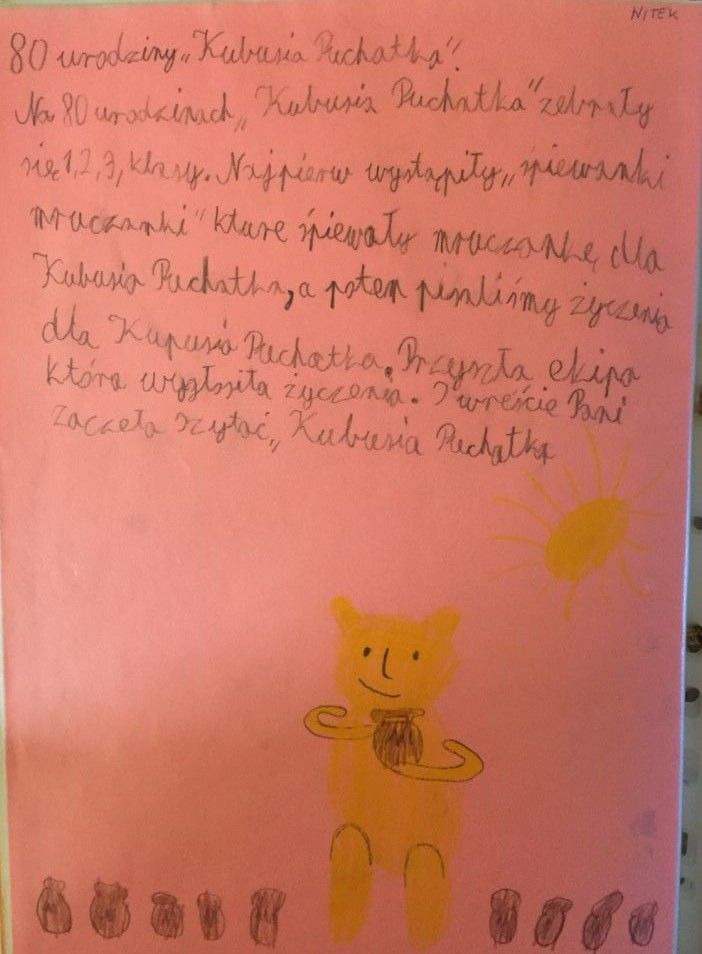 NITEK
80 urodziny „Kubusia Puchatka”.
Na 80 urodzinach „Kubusia Puchatka” zebrały
się 1, 2, 3, klasy. Najpierw wystąpiły „śpiewanki
mruczanki” kture śpiewały mruczankę dla
Kubusia Puchatka, a potem pisaliśmy życzenia
dla Kupusia Puchatka. Przyszła ekipa
która wygłosiła życzenia. I wreście Pani
zaczeła czytać „Kubusia Puchatka